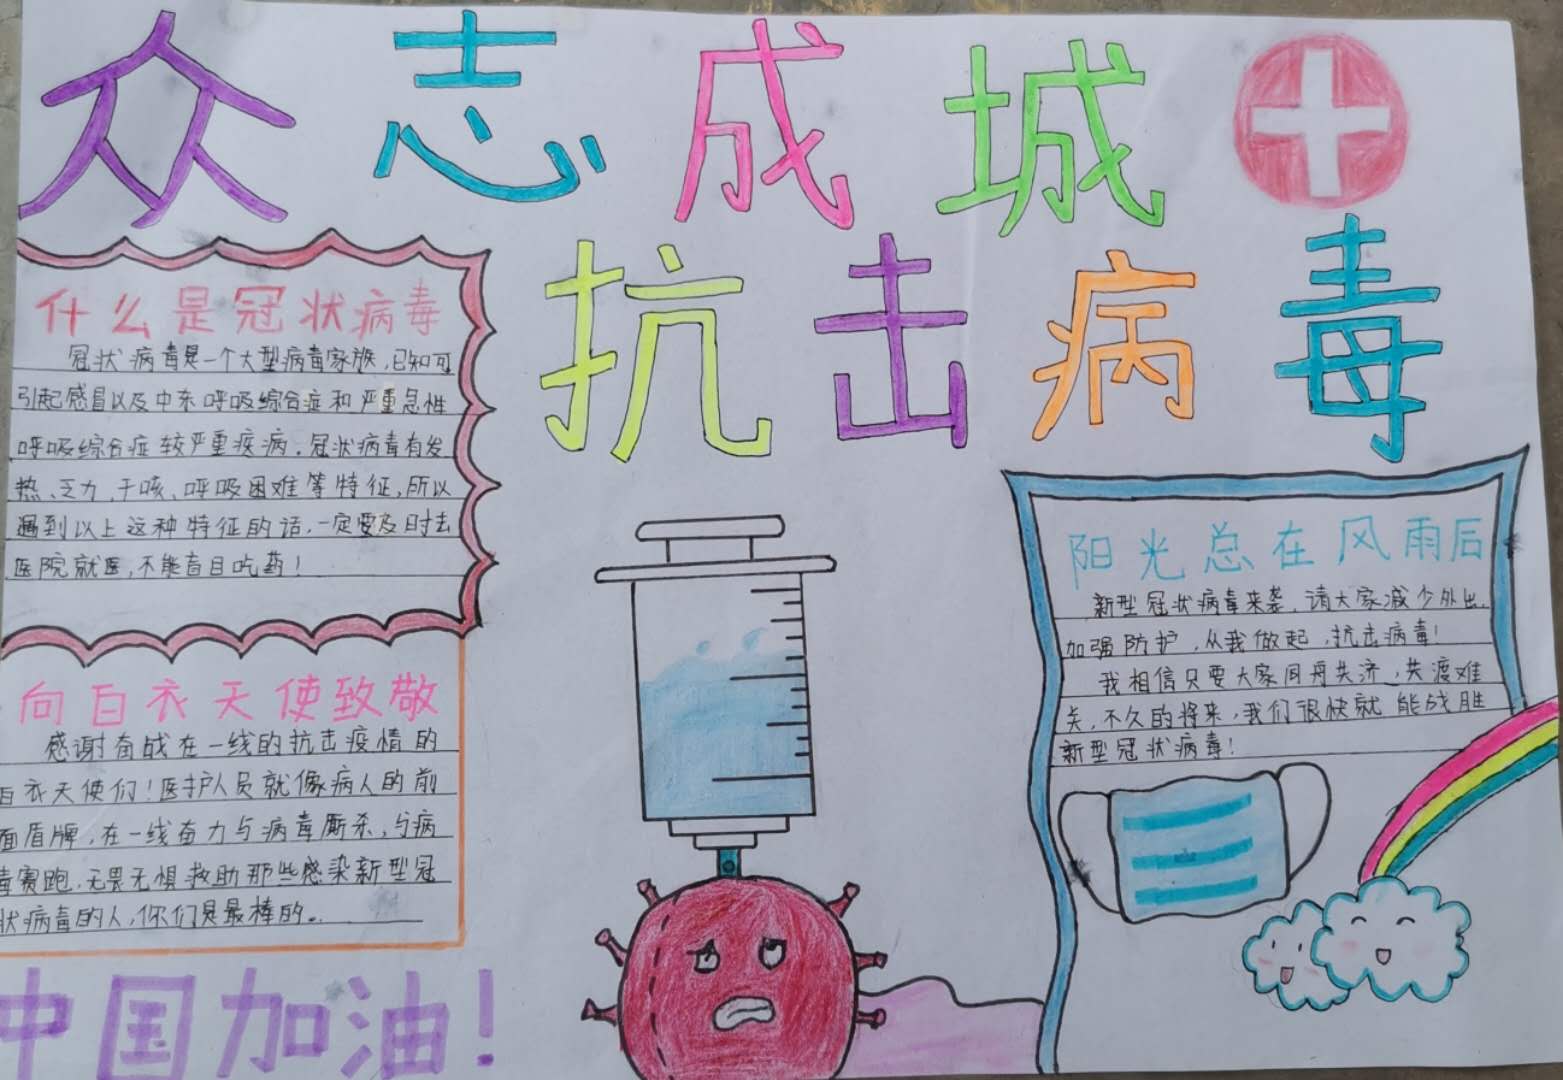 众志成城
抗击病毒
什么是冠状病毒
冠状病毒是一个大型病毒家族,已知可
引起感冒以及中东呼吸综合症和严重急性
呼吸综合症较严重疾病。冠状病毒有发
热、乏力、干咳、呼吸困难等特征,所以
遇到以上这种特征的话,一定要及时去
医院就医,不能盲目吃药!
向白衣天使致敬
感谢奋战在一线的抗击疫情的
白衣天使们!医护人员就像病人的前
面盾牌,在一线奋力与病毒厮杀,与病
毒赛跑,无畏无惧救助那些感染新型冠
状病毒的人,你们是最棒的。
中国加油!
阳光总在风雨后
新型冠状病毒来袭,请大家减少外出,
加强防护,从我做起,抗击病毒!
我相信只要大家同舟共济,共渡难
关,不久的将来,我们很快就能战胜
新型冠状病毒!